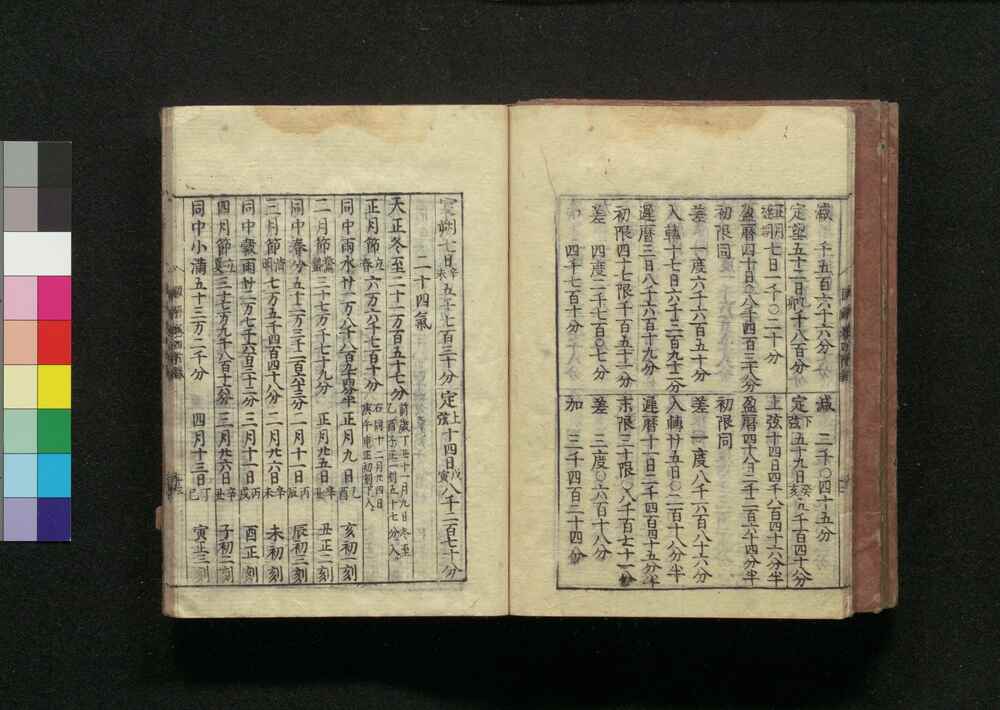 减　千五百六十六分
定望五十二日　九千八百分
正朔七日一千〇二十分
盈暦四十日〇八千四百三十八分
初限同
差　一度六千六百五十分
入轉十七日六千三百九十二分
遲暦三日八千六百十九分
初限四十七限千百五十一分
差　四度二千七百〇七分
加　四千七百十分
减　二千〇四十五分
定下弦五十九日癸亥九千百四十八分
上弦十四日四千八百四十六分半
盈暦四十八日二千二百六十四分半
初限同
差　一度八千六百八十六分
入轉廿五日〇二百十八分半
遲暦十一日二千四百四十五分半
末限三十限〇八千百七十一分
差　三度〇六百十八分
加　三千四百二十四分
定朔七日辛未五千七百三十分　定上弦十四日戊寅八千二百七十分
二十四氣
天正冬至二十二万百五十七分　前歳丁　十一月九日冬至乙酉子正一刻五十七分入
正月節立春六万六千七百十分　右同十二月廿四日庚午申正初刻入
同中雨水廿一万八千八百　正月九日乙酉　亥初一刻
二月節驚蟄三十七万千七十九分　正月廿五日辛丑　丑正二刻
同中春分五十二万三千二百六十三分　二月十一日丙辰　辰初三刻
三月節清明七万五千四百四十八分　二月廿六日辛未　未初刻
同中穀雨廿二万七千六百三十二分　三月十一日丙戌　酉正刻
四月節立夏三十七万九千八百十六分　三月廿六日辛丑　子初二刻
同中小滿五十三万二千分　四月十三日丁巳　寅正三刻